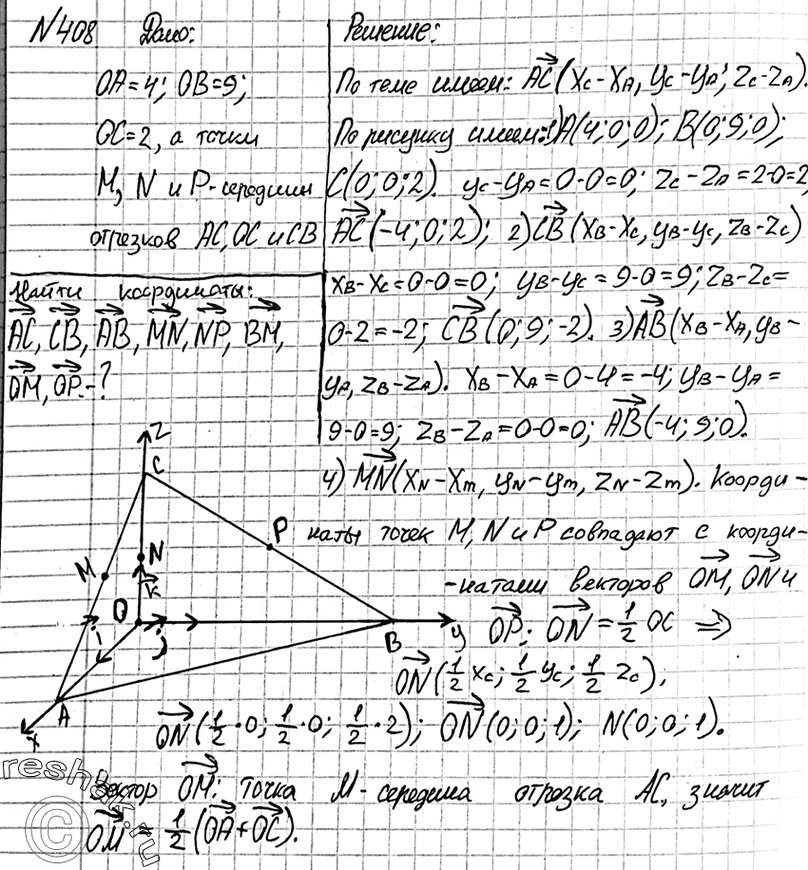 №408 Дано:
OA=4; OB=9;
OC=2, а точки
M, N и P-середины
отрезков AC, OC и CB
Найти координаты:
AC, CB, AB, MN, NP, BM,
OM, OP.-?
Решение:
По теме имеем: AC(xc-xA, yc-yA; zc-zA).
По рисунку имеем:1)A(4;0;0); B(0;9;0);
C(0;0;2). yc-yA=0-0=0; zc-zA=2-0=2,
AC(-4;0;2); 2)CB(xB-xc, yB-yc, zB-zc)
xB-xc=0-0=0; yB-yc=9-0=9; zB-zc=
0-2=-2; CB(0;9;-2). 3)AB(xB-xA, yB-
yA, zB-zA). xB-xA=0-4=-4; yB-yA=
9-0=9; zB-zA=0-0=0; AB(-4;9;0).
4) MN(xN-xm, yN-ym, zN-zm). Коорди-
наты точек M, N и P совпадают с коорди-
-натами векторов OM, ON и
OP; ON=1/2 OC ⇒
ON(1/2 xc; 1/2 yc; 1/2 zc);
ON(1/2·0; 1/2·0; 1/2·2); ON(0;0;1); N(0;0;1).
Вектор OM: точка M-середина отрезка AC, значит
OM = 1/2(OA+OC).
z
C
P
N
M
k
O
i
j
B
y
A
x
reshak.ru
©